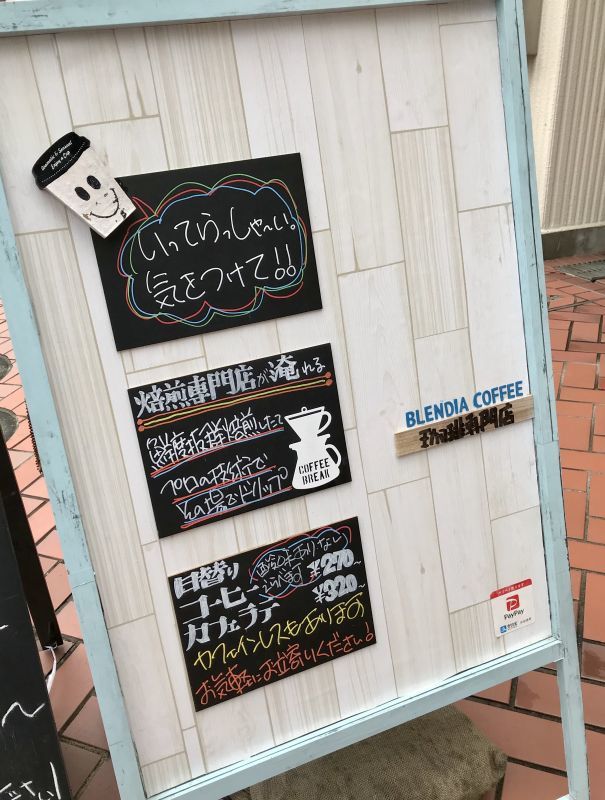 いってらっしゃ〜い。
気をつけて!!
焙煎専門店が淹れる
鮮度抜群焙煎したて
プロの技術で
その場でドリップ
COFFEE
BREAK
BLENDIA COFFEE
珈琲専門店
酸味あり・なし
えらべます
日替り
コーヒー ¥270~
カフェラテ ¥320~
カフェインレスもあります
お気軽にお立寄りください!
PayPay